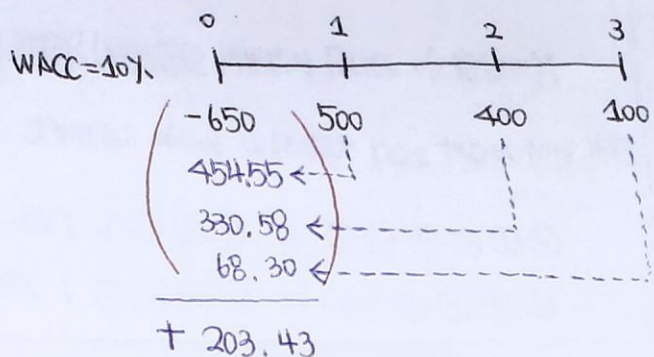 0 1 2 3
WACC=10%
-650 500 400 100
454.55
330.58
68.30
+ 203.43